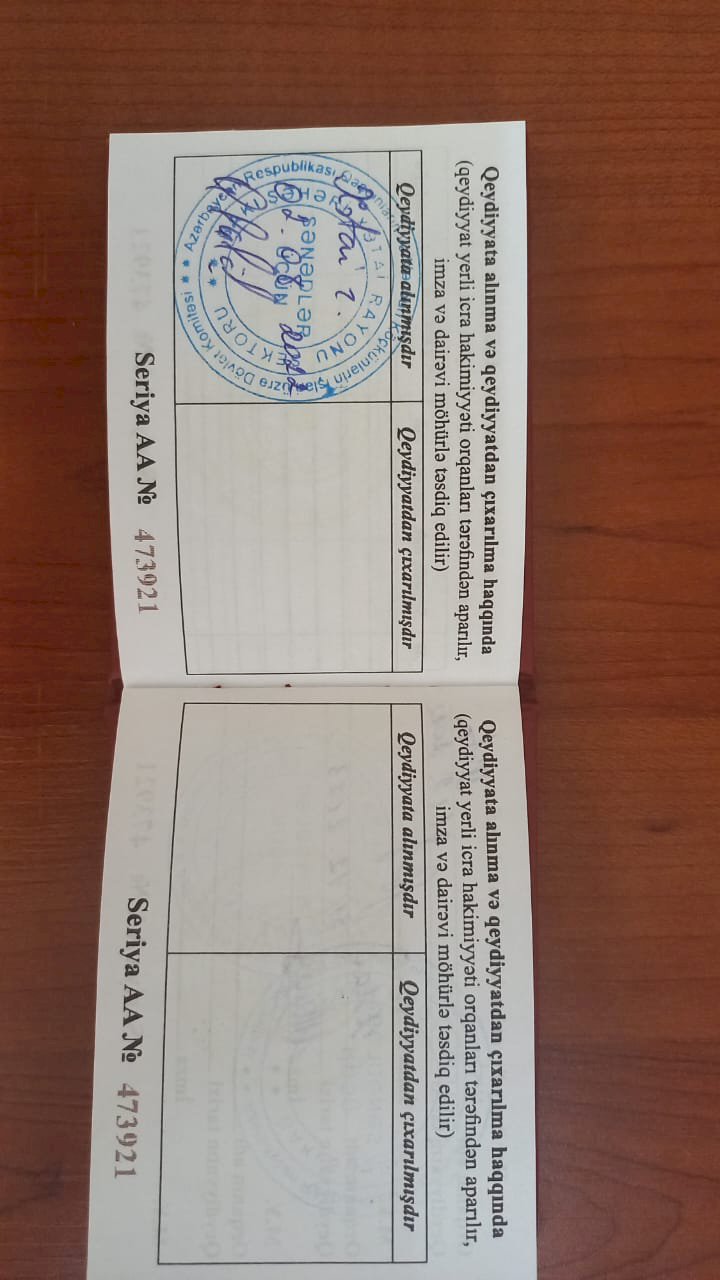 Qeydiyyata alınma və qeydiyyatdan çıxarılma haqqında
(qeydiyyat yerli icra hakimiyyəti orqanları tərəfindən aparılır,
imza və dairəvi möhürlə təsdiq edilir)
Qeydiyyata alınmışdır
Qeydiyyatdan çıxarılmışdır
Azərbaycan Respublikası
İşləri üzrə Dövlət Komitəsi
RAYONU
SƏNƏDLƏR
ÜÇÜN
Seriya AA № 473921
Qeydiyyata alınma və qeydiyyatdan çıxarılma haqqında
(qeydiyyat yerli icra hakimiyyəti orqanları tərəfindən aparılır,
imza və dairəvi möhürlə təsdiq edilir)
Qeydiyyata alınmışdır
Qeydiyyatdan çıxarılmışdır
Seriya AA № 473921